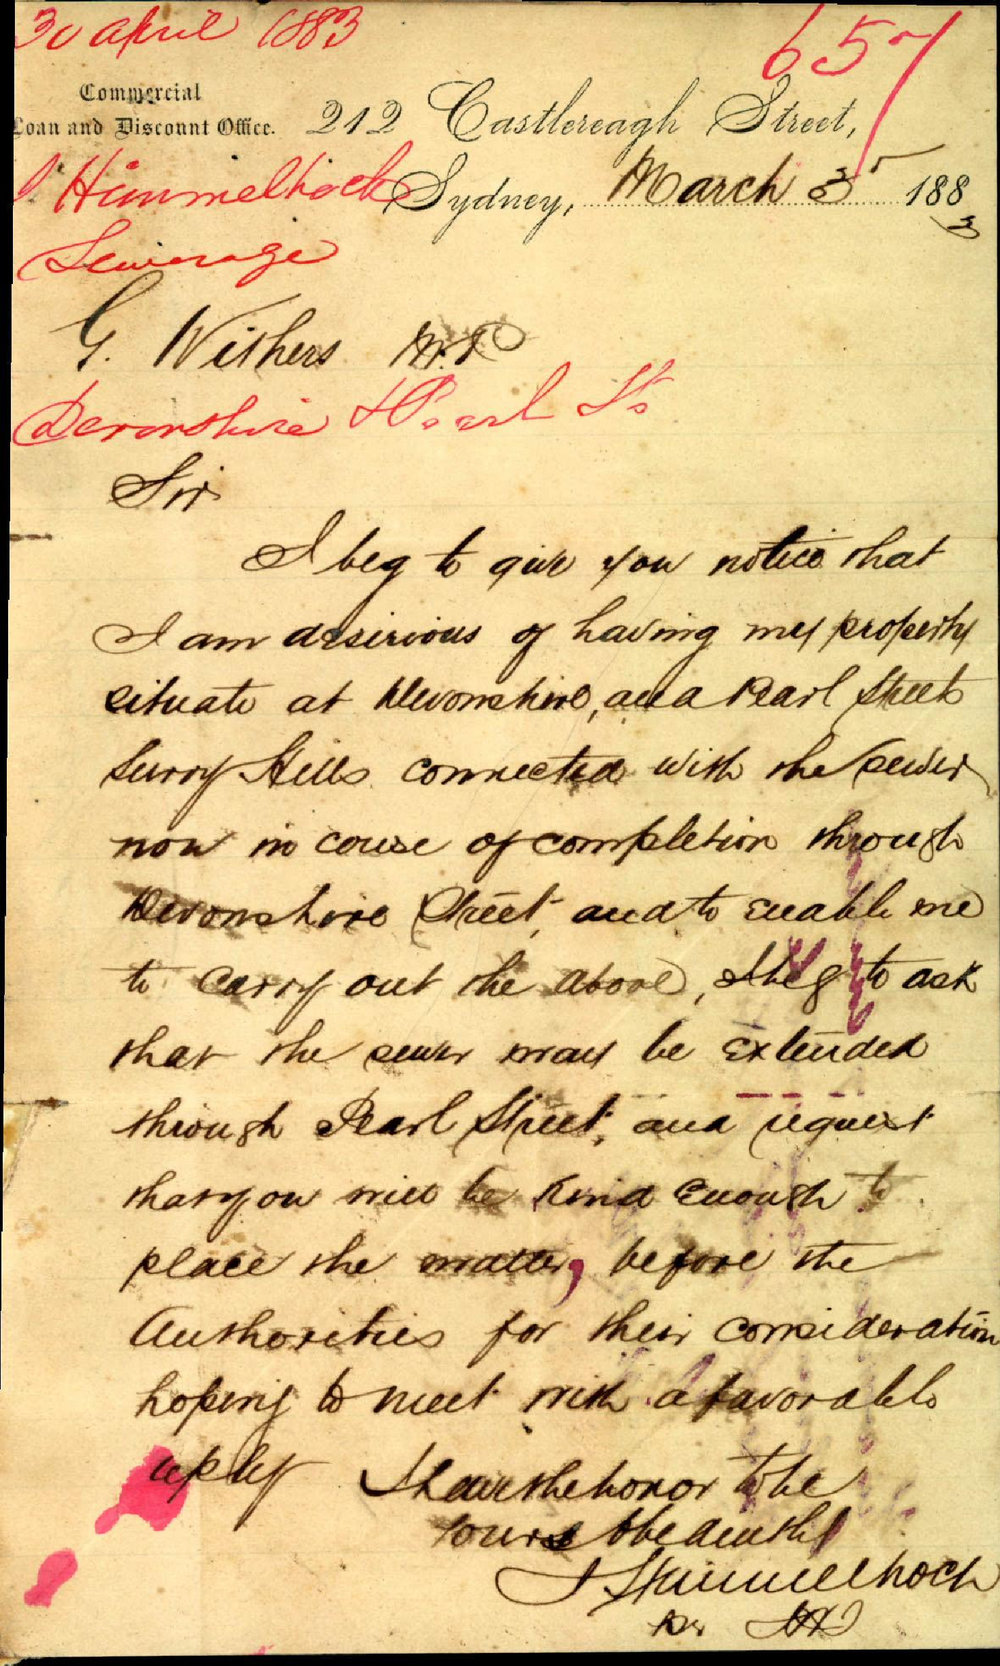 30 April 1883
657
Commercial
Loan and Discount Office.
212 Castlereagh Street,
J. Himmelhoch
Sydney, March 35 1883
Sewerage
G. Withers M.P
Devonshire & Pearl Sts
Sir
I beg to give you notice that
I am desirious of having my property
situate at Devonshire, and Pearl Street
Surry Hills connected with the sewer
now in couse of completion through
Devonshire Street, and to enable me
to carry out the above, I beg to ask
that the sewer may be extended
through Pearl Street, and request
that you will be kind enough to
place the matter, before the
Authorities for their consideration
hoping to meet with a favorable
reply I have the honor to be
yours obediently
J Himmelhoch
per